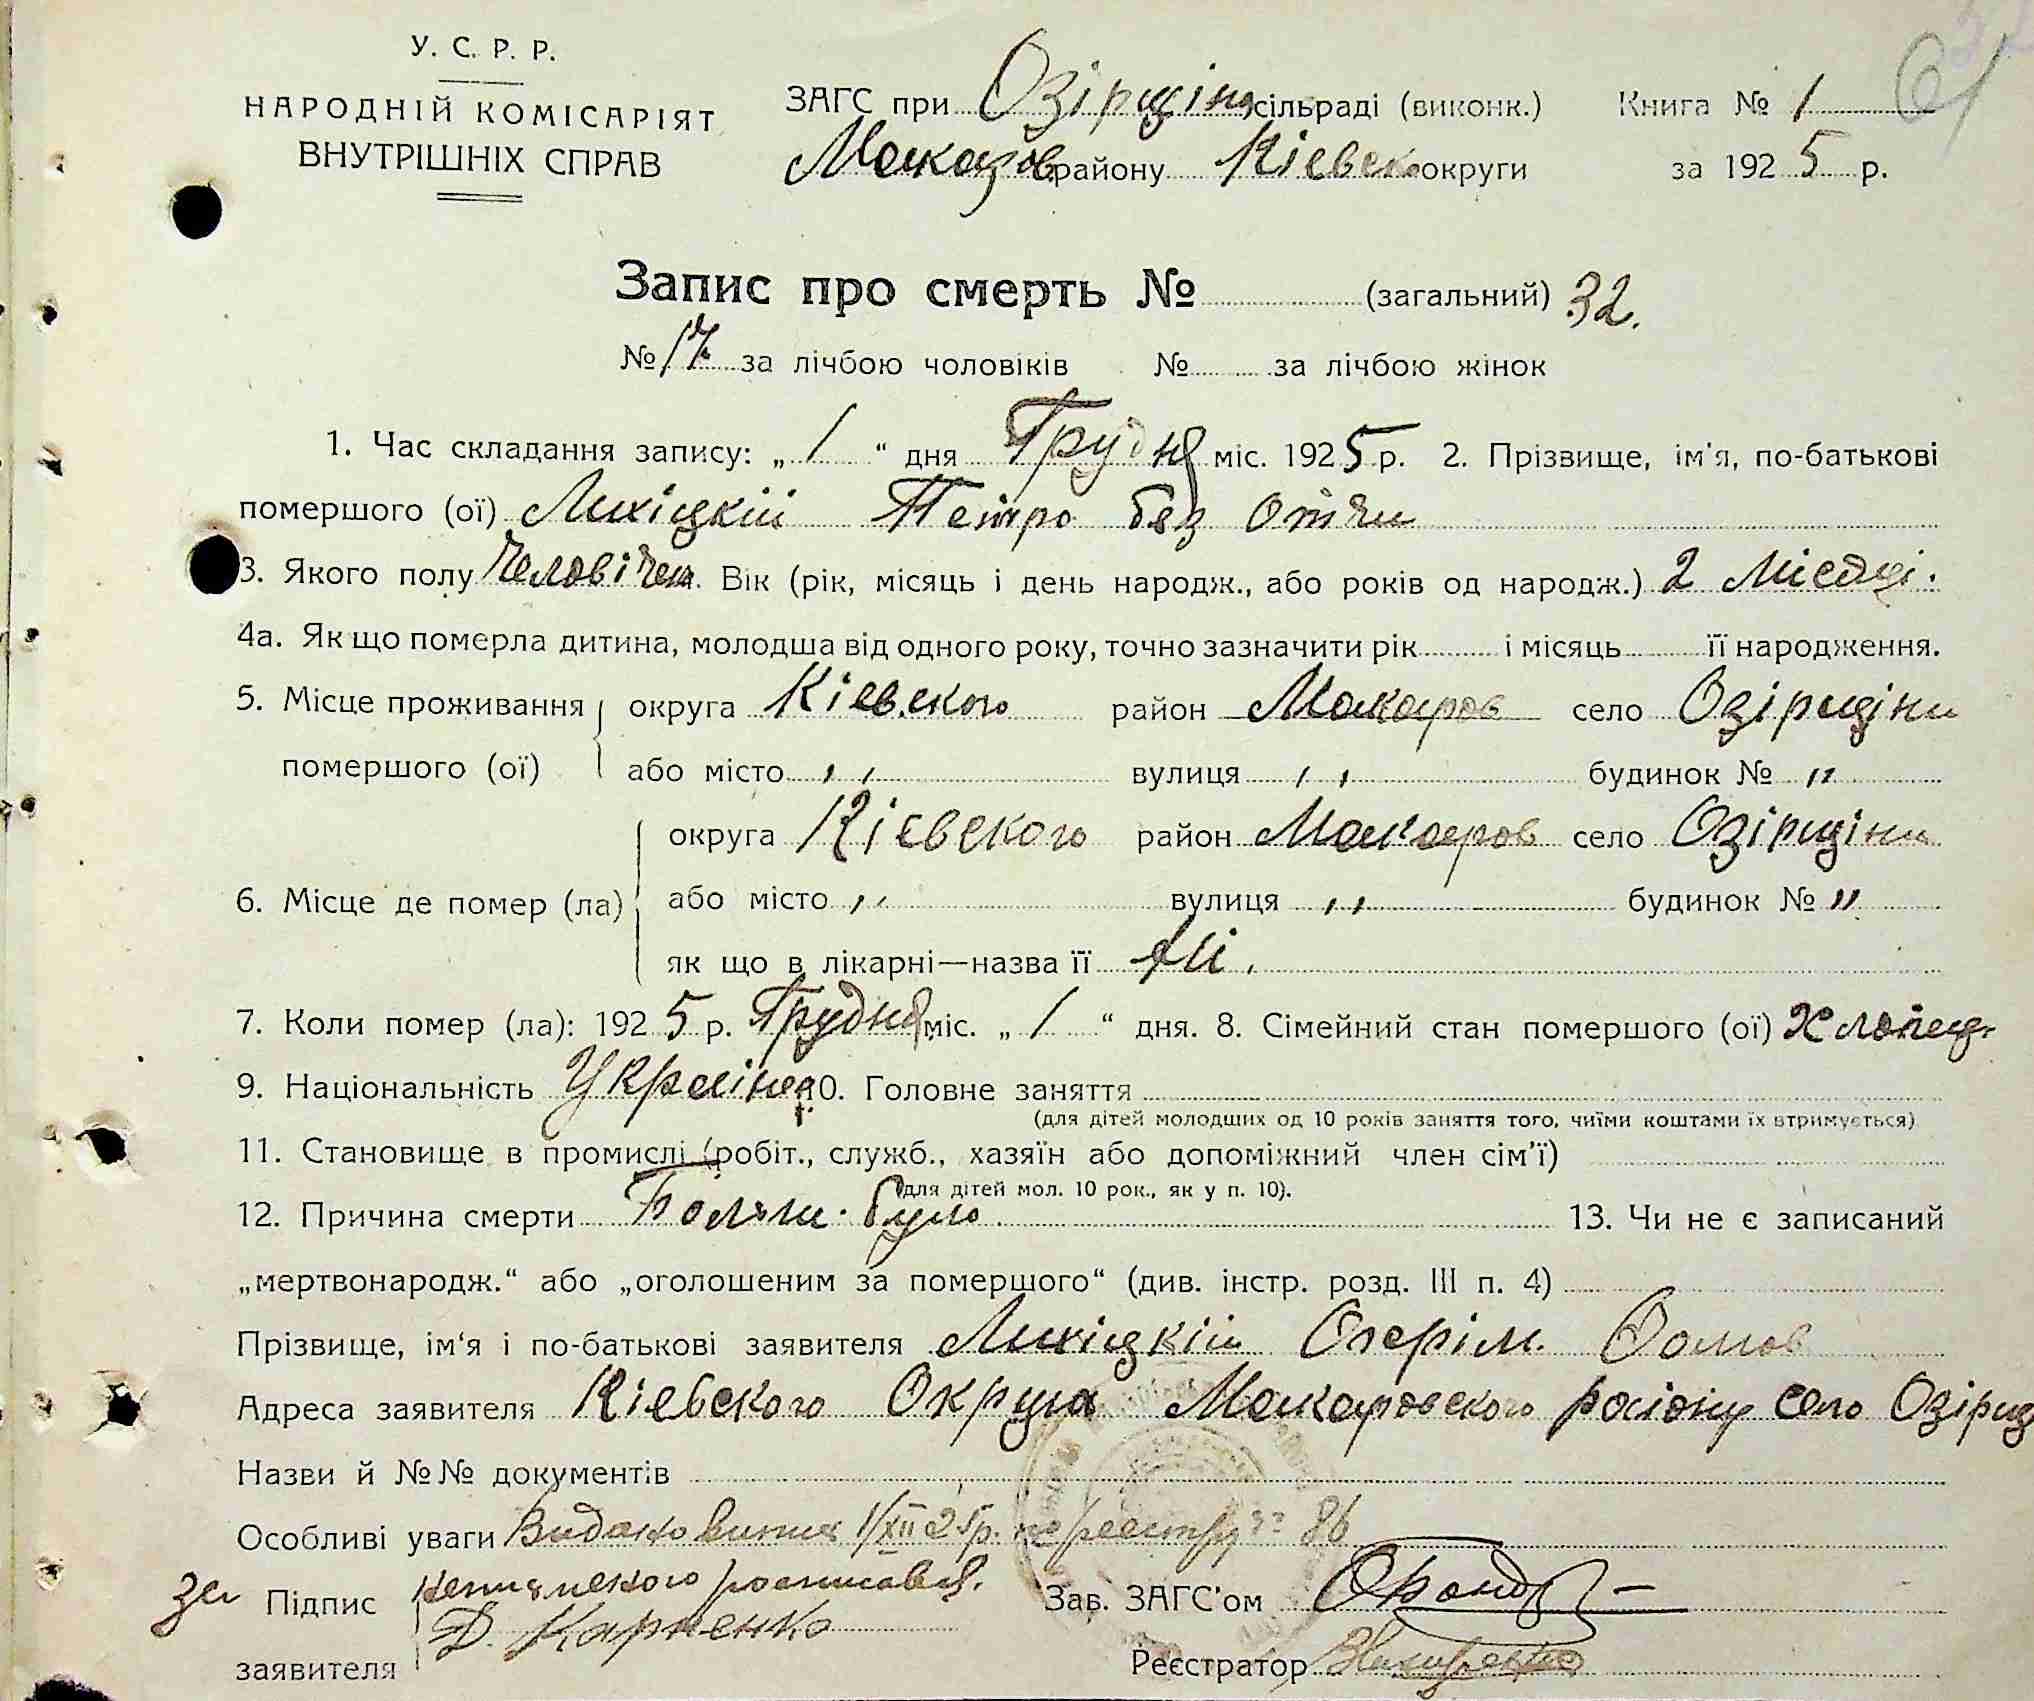 У. С. Р. Р.
НАРОДНІЙ КОМІСАРІЯТ
ВНУТРІШНІХ СПРАВ
ЗАГС при Озірщіна сільраді (виконк.) Книга № 1
Макаров району Кіевск округи за 1925 р.
61
Запис про смерть № (загальний) 32.
№ 17 за лічбою чоловіків № за лічбою жінок
1. Час складання запису: „ 1 “ дня Грудня міс. 1925 р. 2. Прізвище, ім'я, по-батькові
помершого (ої) Лихіцкій Петро без отчи
3. Якого полу Человічеш. Вік (рік, місяць і день народж., або років од народж.) 2 Місяці.
4а. Як що померла дитина, молодша від одного року, точно зазначити рік і місяць її народження.
5. Місце проживання округа Кіевского район Макаров село Озірщіни
помершого (ої) або місто " вулиця " будинок № "
округа Кіевского район Макаров село Озірщіни
6. Місце де помер (ла) або місто " вулиця " будинок № "
як що в лікарні—назва її
7. Коли помер (ла): 1925 р. Грудня міс. „ 1 “ дня. 8. Сімейний стан помершого (ої) хлопец.
9. Національність Украінец 10. Головне заняття
(для дітей молодших од 10 років заняття того, чиїми коштами їх втримується)
11. Становище в промислі (робіт., служб., хазяїн або допоміжний член сім'ї)
(для дітей мол. 10 рок., як у п. 10).
12. Причина смерти було 13. Чи не є записаний
„мертвонародж.“ або „оголошеним за помершого“ (див. інстр. розд. III п. 4)
Прізвище, ім'я і по-батькові заявителя Лихіцкій
Адреса заявителя Кіевского Округа Макаровского раіону село Озірщ
Назви й №№ документів
Особливі уваги Видано випис 1/XII 25р. по реестру № 86
за Підпис росписався.
Д. Карпенко
заявителя
Зав. ЗАГС'ом
Реєстратор